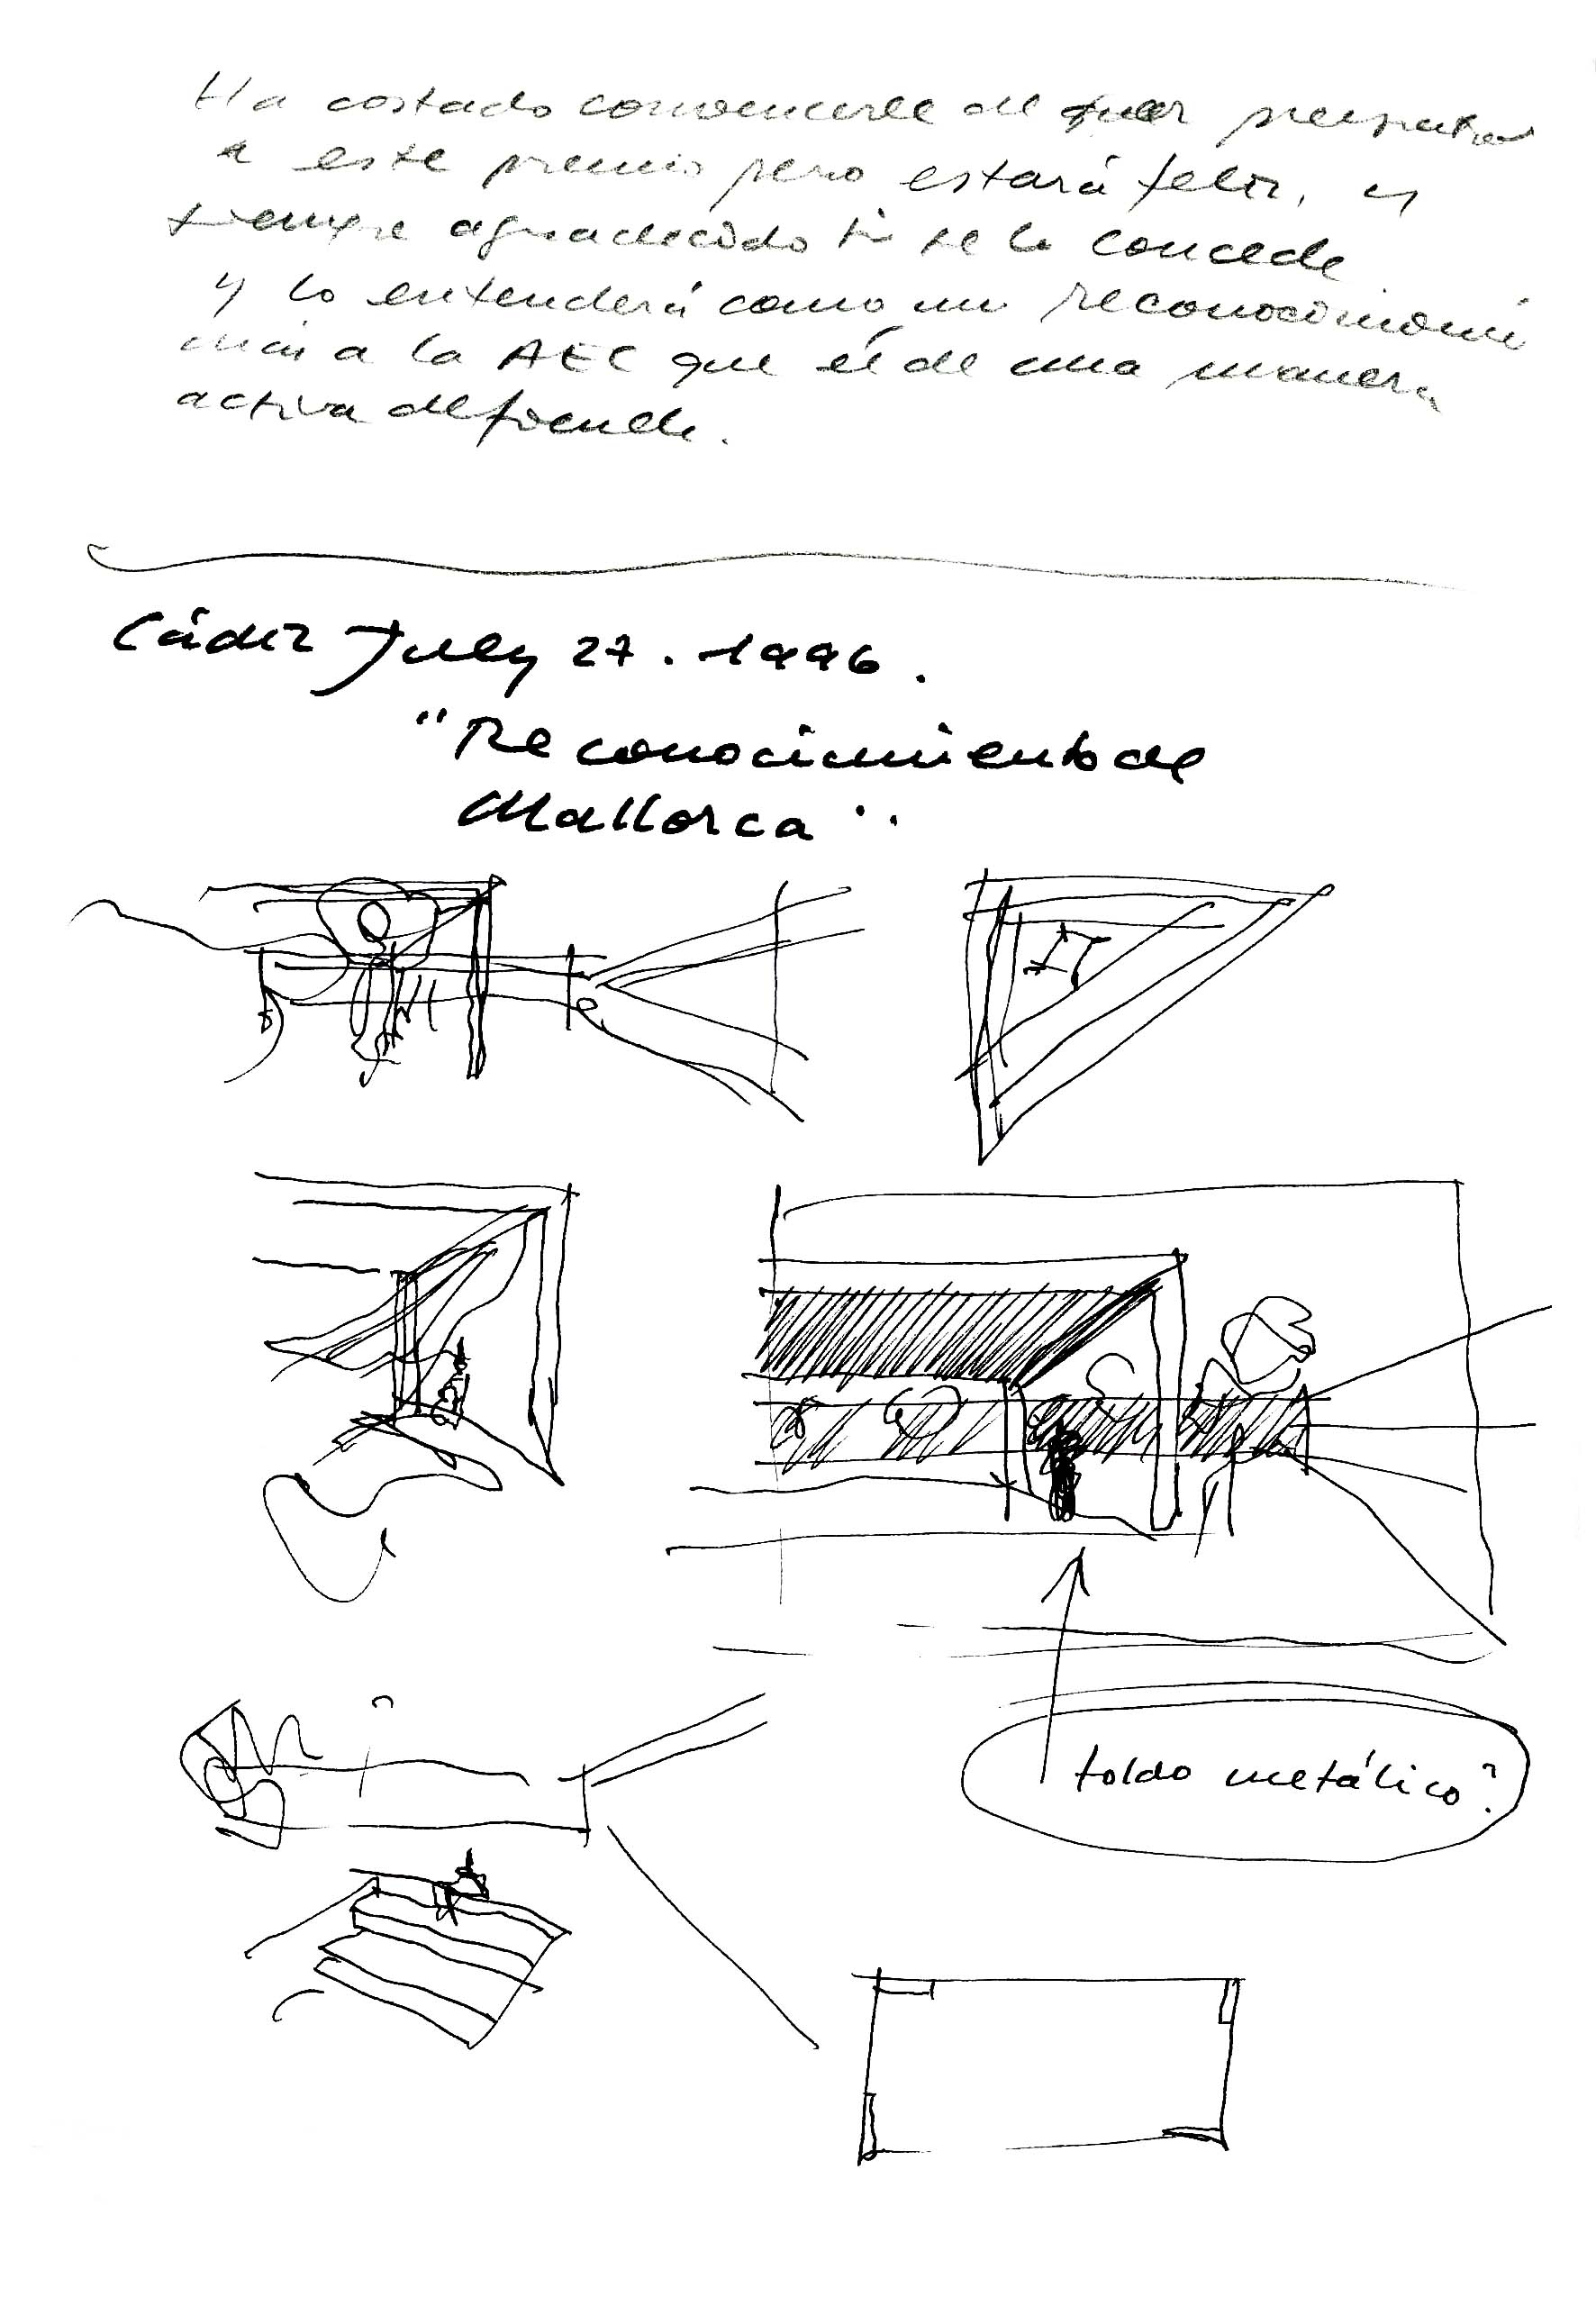 Ha costado convencerle de que presentar
a este premio pero estará feliz, y
siempre agradecido si se lo concede
y lo entenderá como un reconocimiento
más a la AEC que él de una manera
activa defiende.
Cádiz July 27. 1996.
"Reconocimiento de
Mallorca".
toldo metálico?